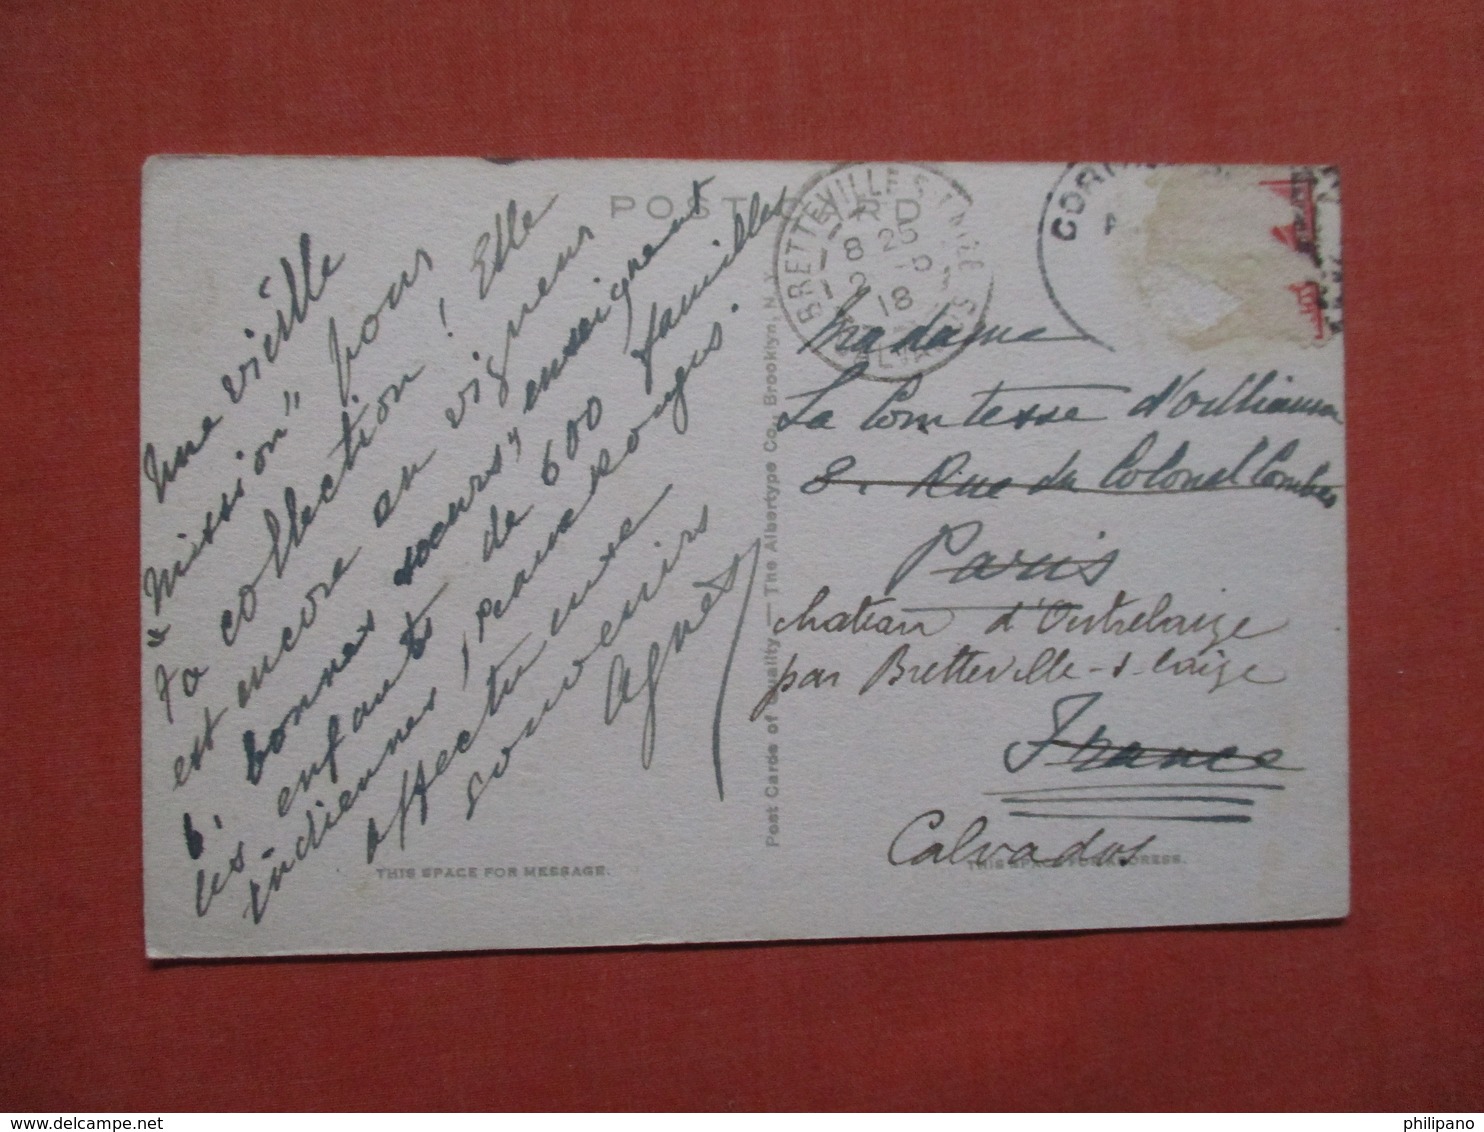 POST CARD
Une vieille
"mission" pour
ta collection! Elle
est encore en vigueur
6. bonnes soeurs, enseignent
les enfants de 600 familles
indiennes, peaux rouges.
affectueux
souvenirs
Agnès
THIS SPACE FOR MESSAGE.
Post Cards of Quality.—The Albertype Co., Brooklyn, N. Y.
BRETTEVILLE S LAIZE
8 25
18
CALVADOS
COR
Madame
La Comtesse d'Oilliamson
8, Rue du Colonel Combes
Paris
chateau d'Outrelaize
par Bretteville-s-laize
France
Calvados
THIS SPACE FOR ADDRESS.
philipano